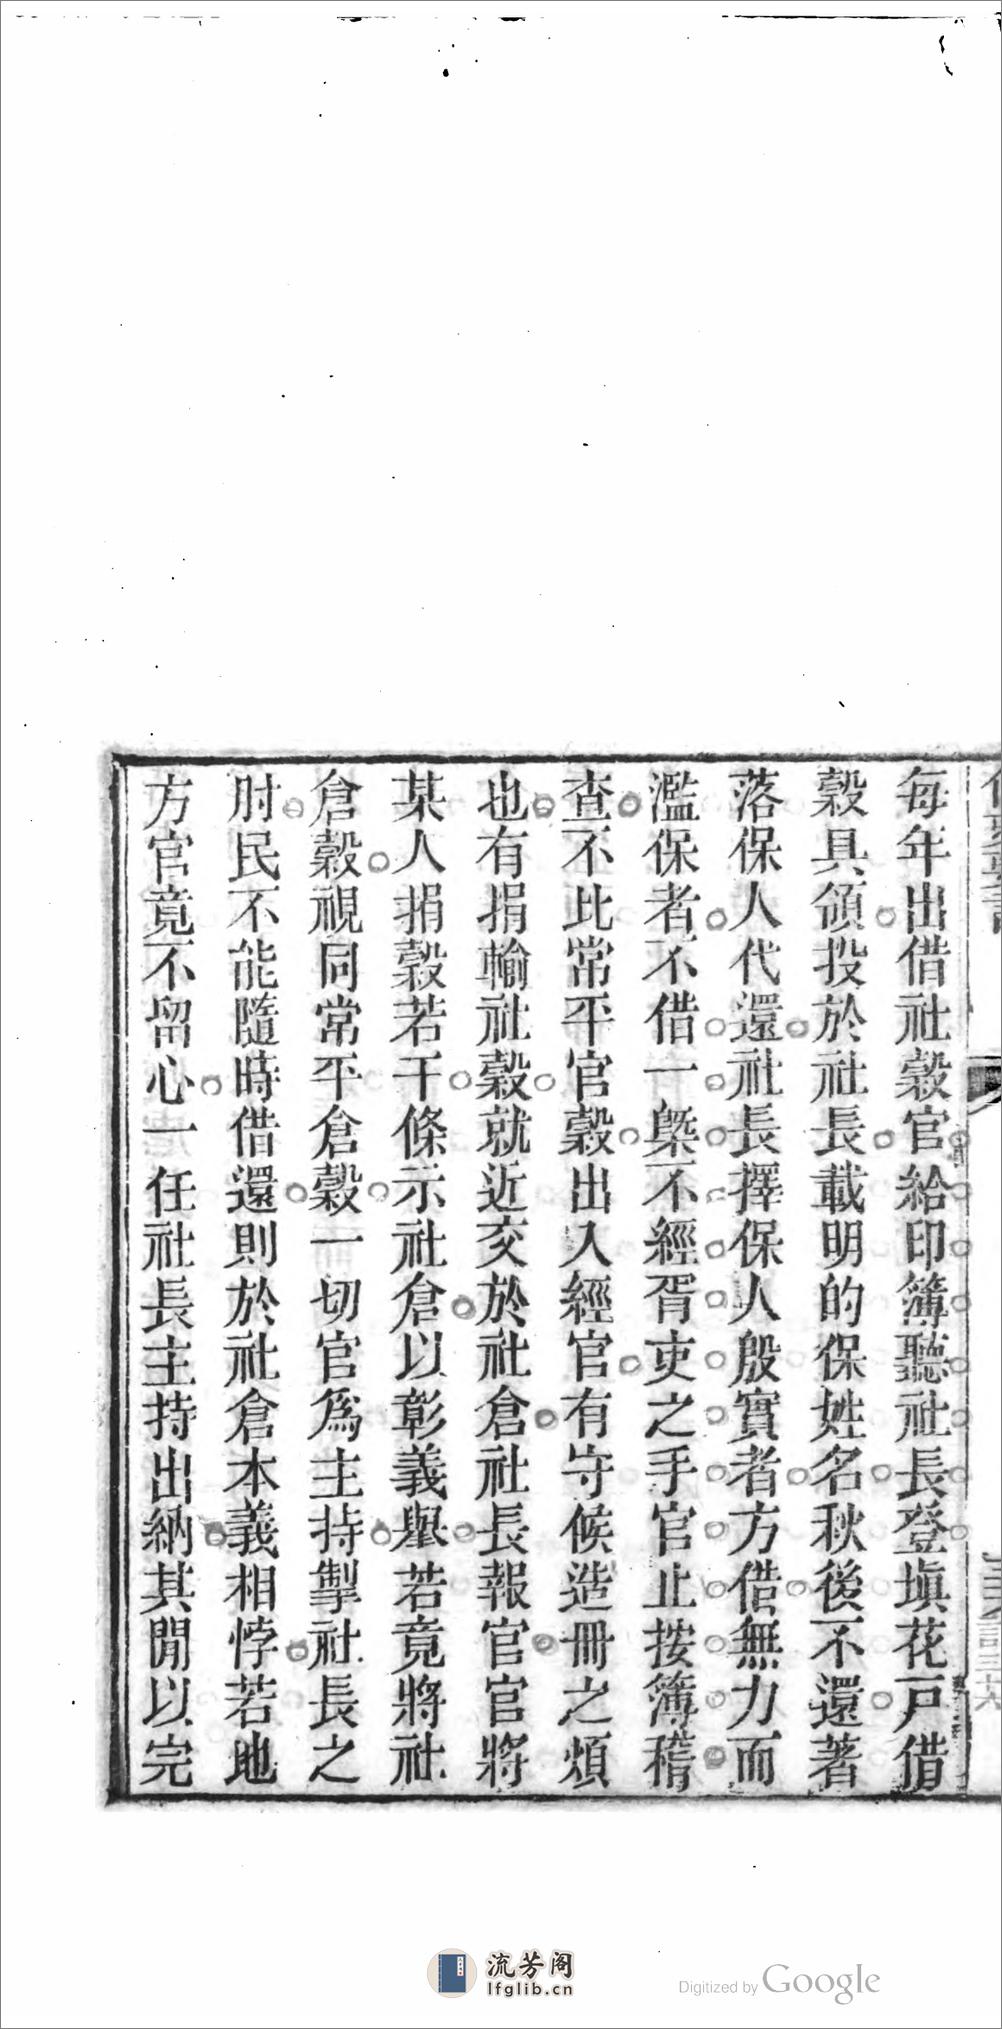 每年出借社穀官給印簿聽社長登塡花戸借
穀具領投於社長載明的保姓名秋後不還著
落保人代還社長擇保人殷實者方借無力而
濫保者不借一槩不經胥吏之手官止按簿稽
查不比常平官穀出入經官有守候造冊之煩
也有捐輸社穀就近交於社倉社長報官官將
某人捐穀若干條示社倉以彰義舉若竟將社
倉穀視同常平倉穀一切官爲主持掣社長之
肘民不能隨時借還則於社倉本義相悖若地
方官竟不留心一任社長主持出納其閒以完
流芳阁
lfglib.cn
Digitized by Google